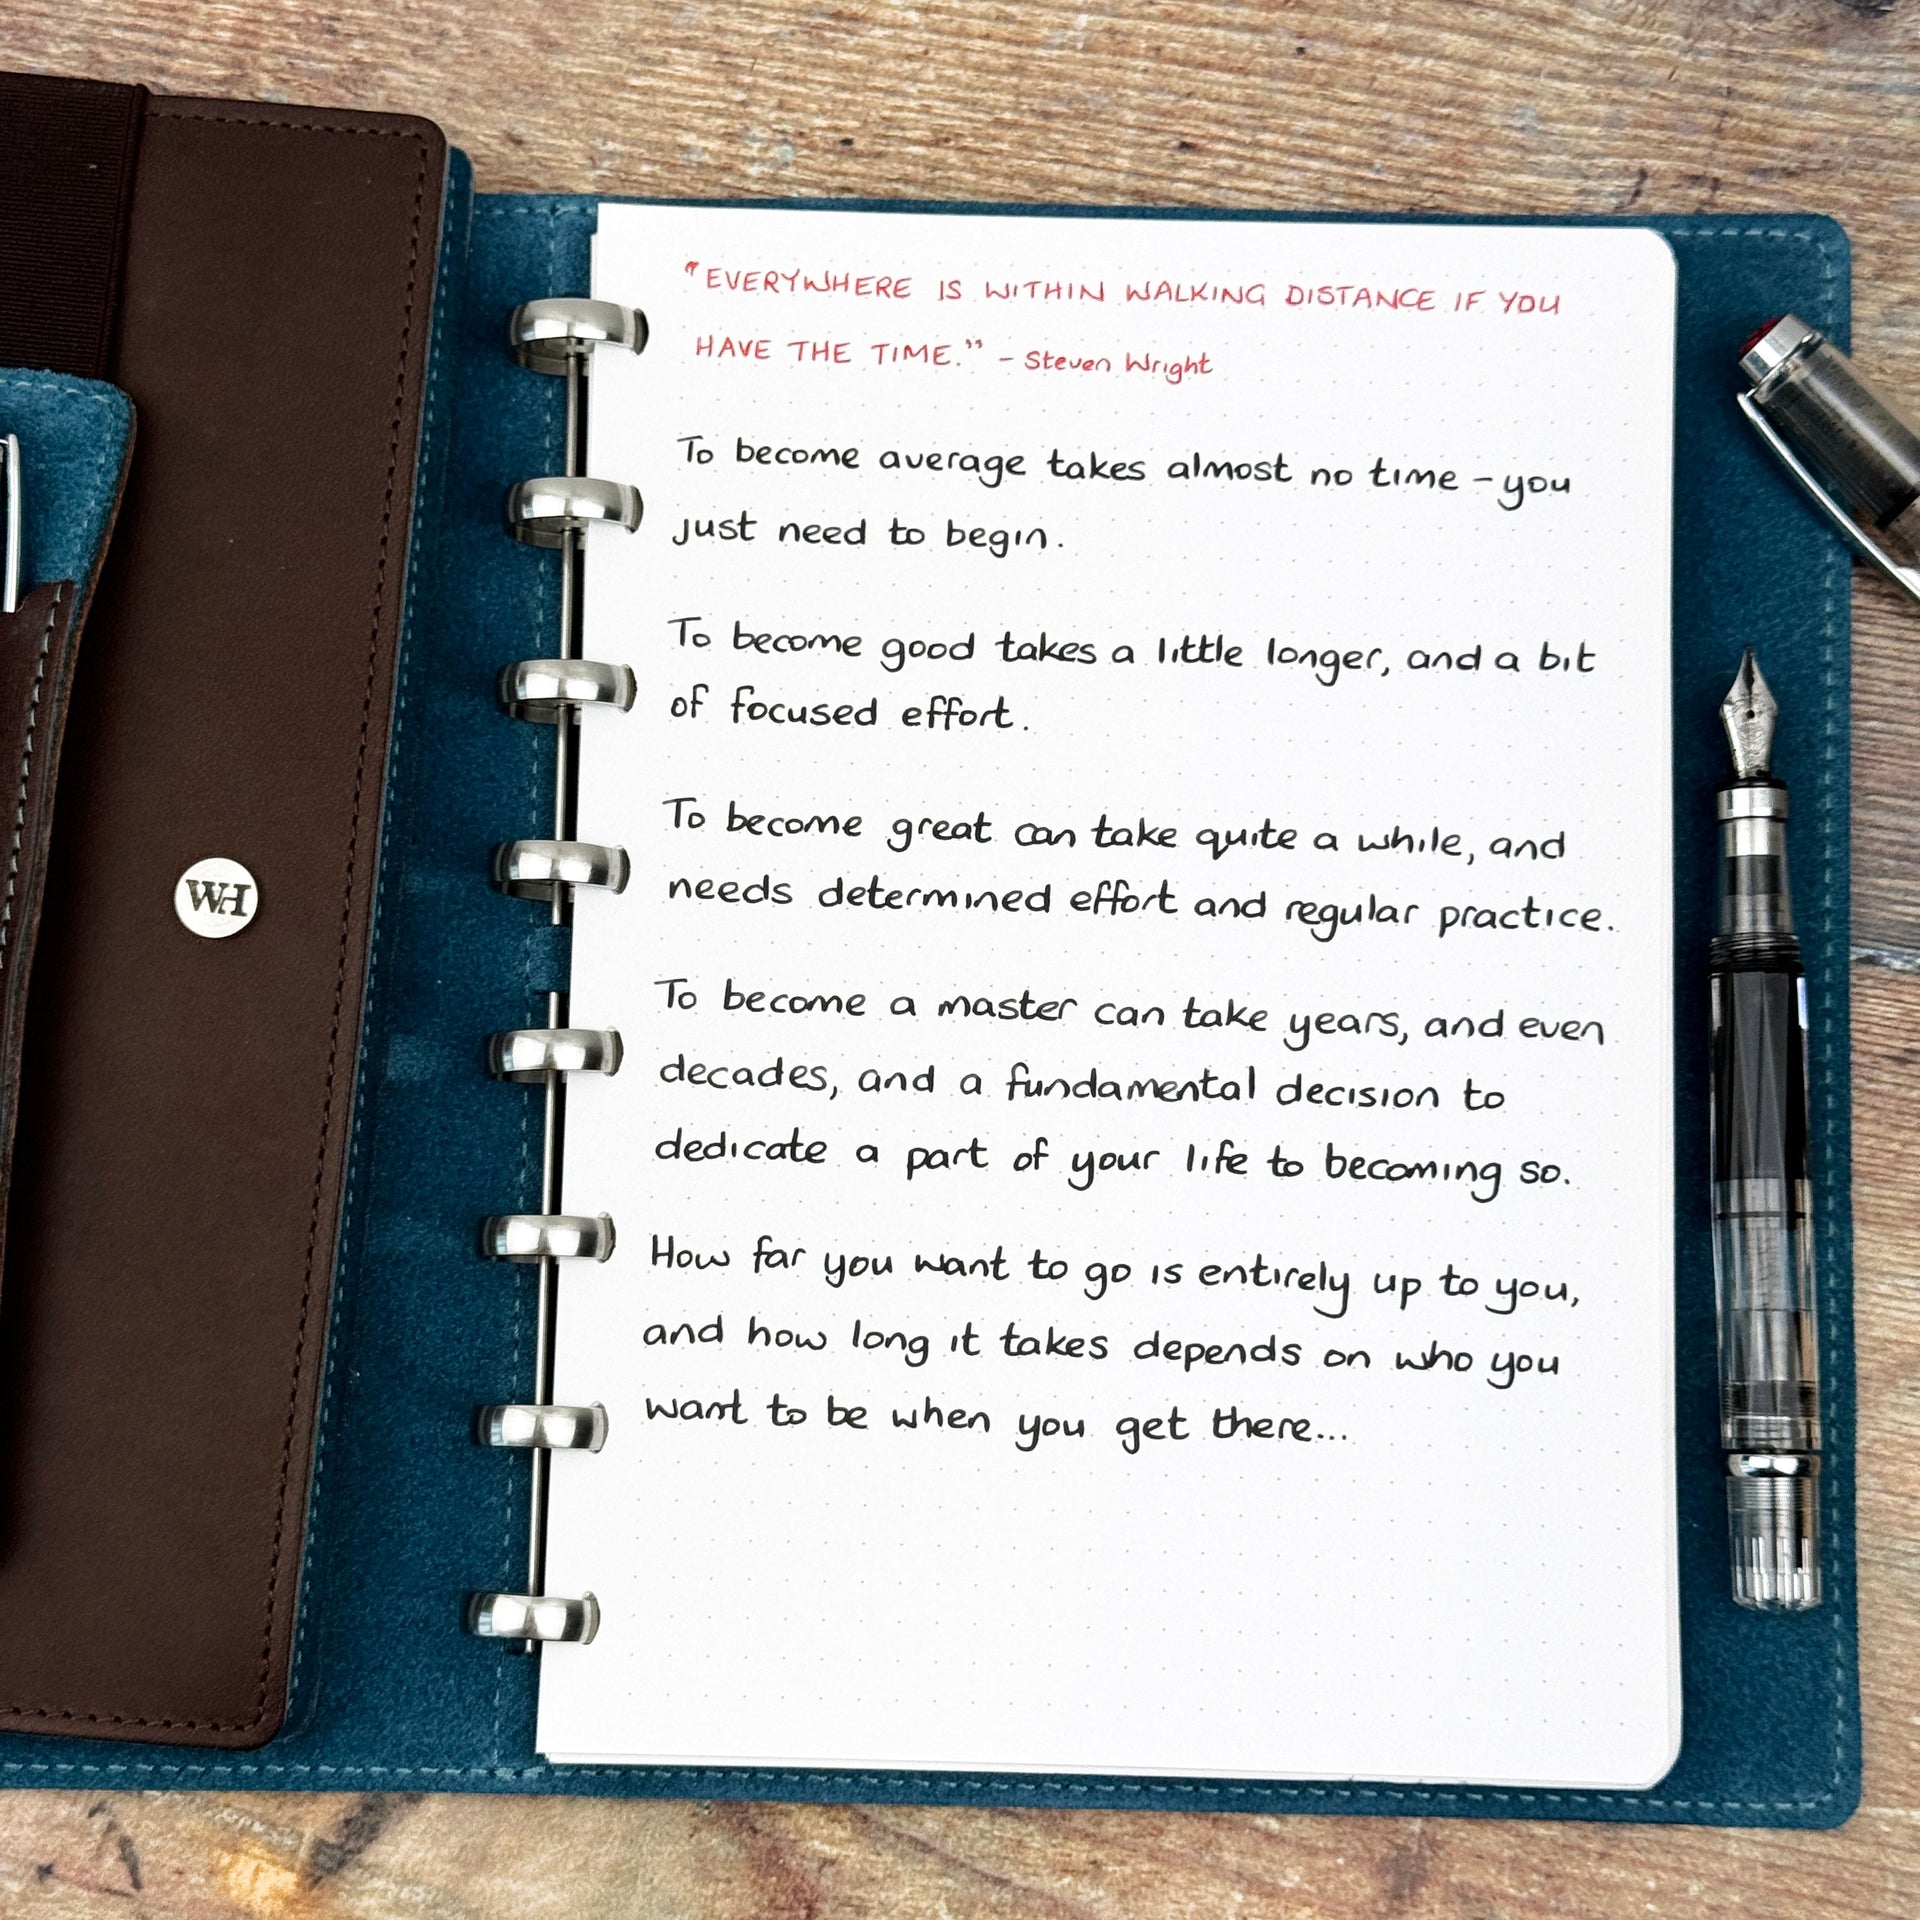 WH
"EVERYWHERE IS WITHIN WALKING DISTANCE IF YOU
HAVE THE TIME." - Steven Wright
To become average takes almost no time - you
just need to begin.
To become good takes a little longer, and a bit
of focused effort.
To become great can take quite a while, and
needs determined effort and regular practice.
To become a master can take years, and even
decades, and a fundamental decision to
dedicate a part of your life to becoming so.
How far you want to go is entirely up to you,
and how long it takes depends on who you
want to be when you get there...